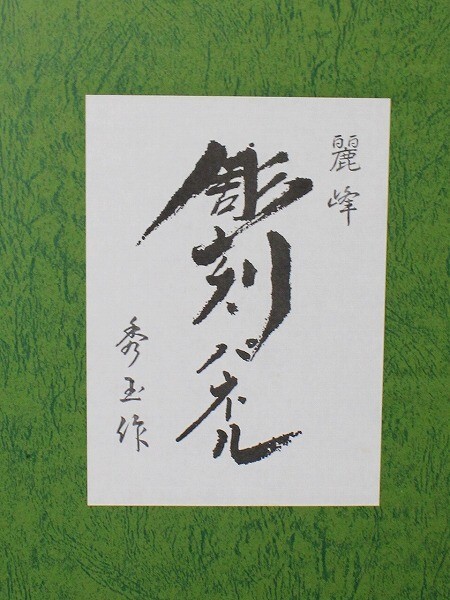 麗峰
彫刻パネル
秀玉作